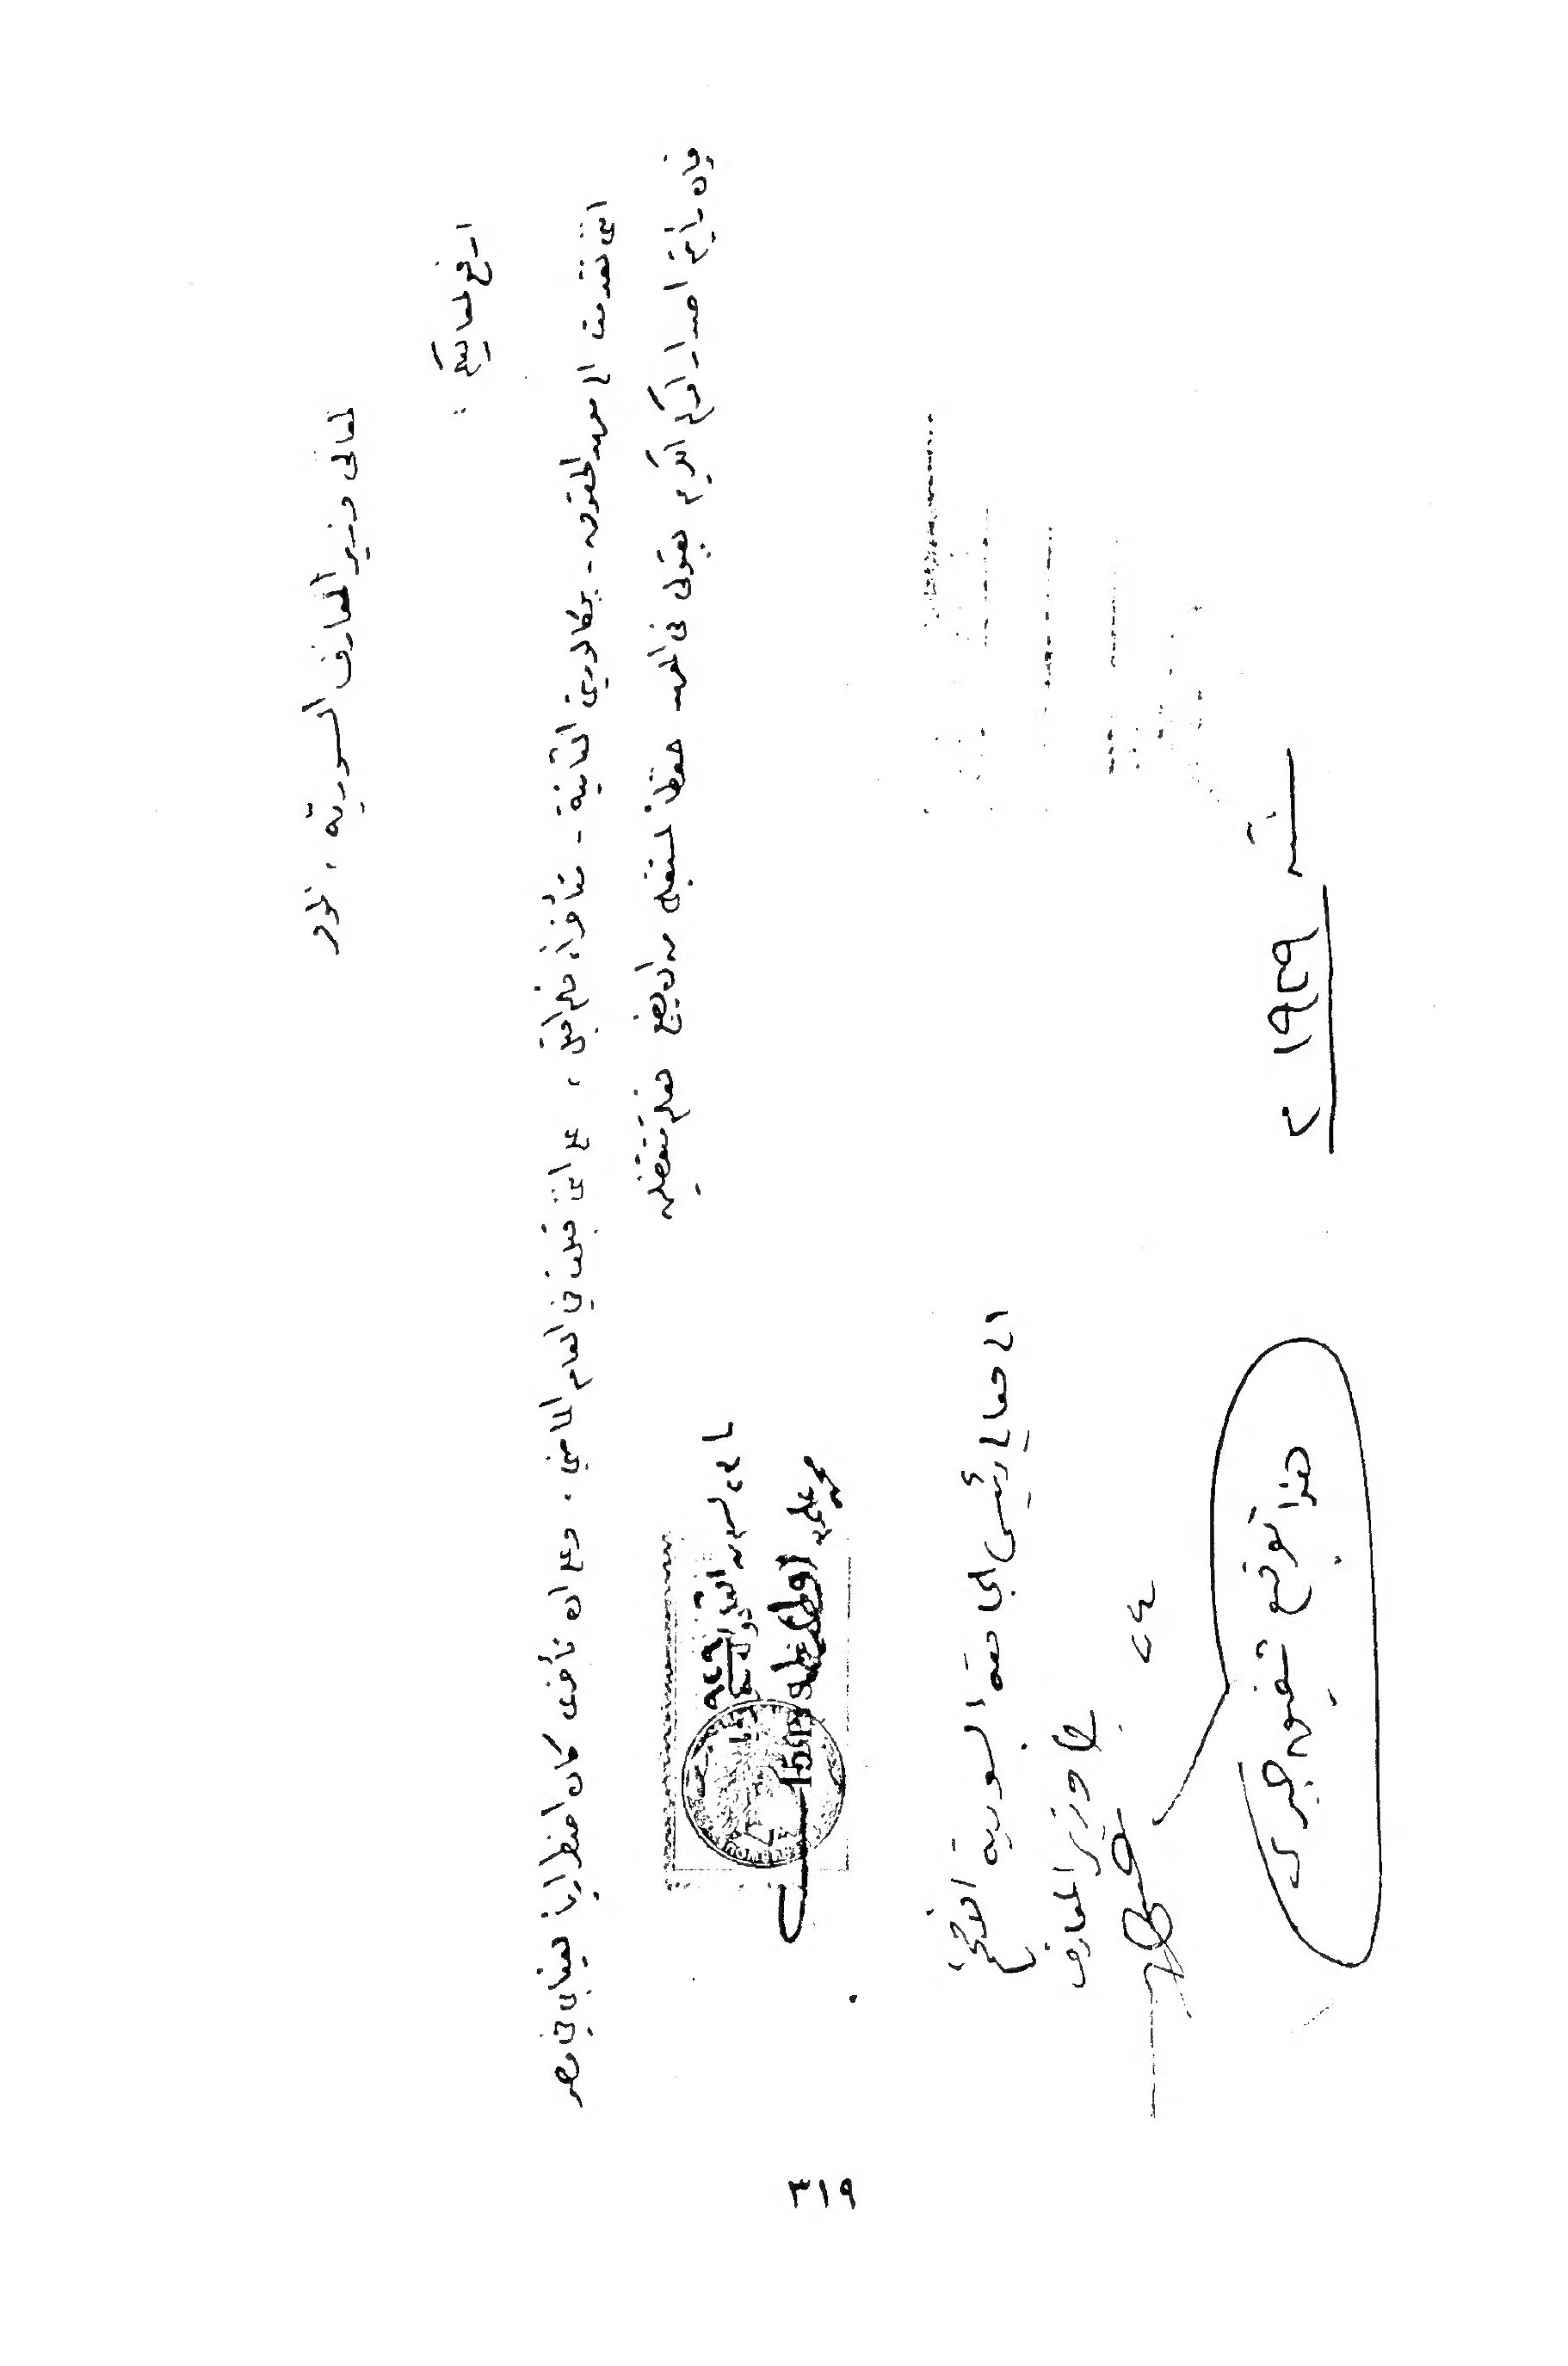 لمعالي وزير المعارف السورية، الموقر
ارفع لمعاليكم :
انني تقدمت الى معهد الحقوق - ببكالوريتي الثانية - متأخراً، فلم اقبل، على انني قبلت في العام الماضي. وعلى ان تأخري كان اضطرارياً لغيابي في مصر
فإن رأيتم اصدار امركم الكريم بقبولي في المعهد حفظاً لمستقبلي من ان يضيع فعلتم متفضلين
محمد علي الطنطاوي
الى معالي رئيس الجامعة السورية الافخم
وزير المعارف
٢٤
هذا توقيع شفيق جبري
سنة ١٩٢٩ م
٣١٩